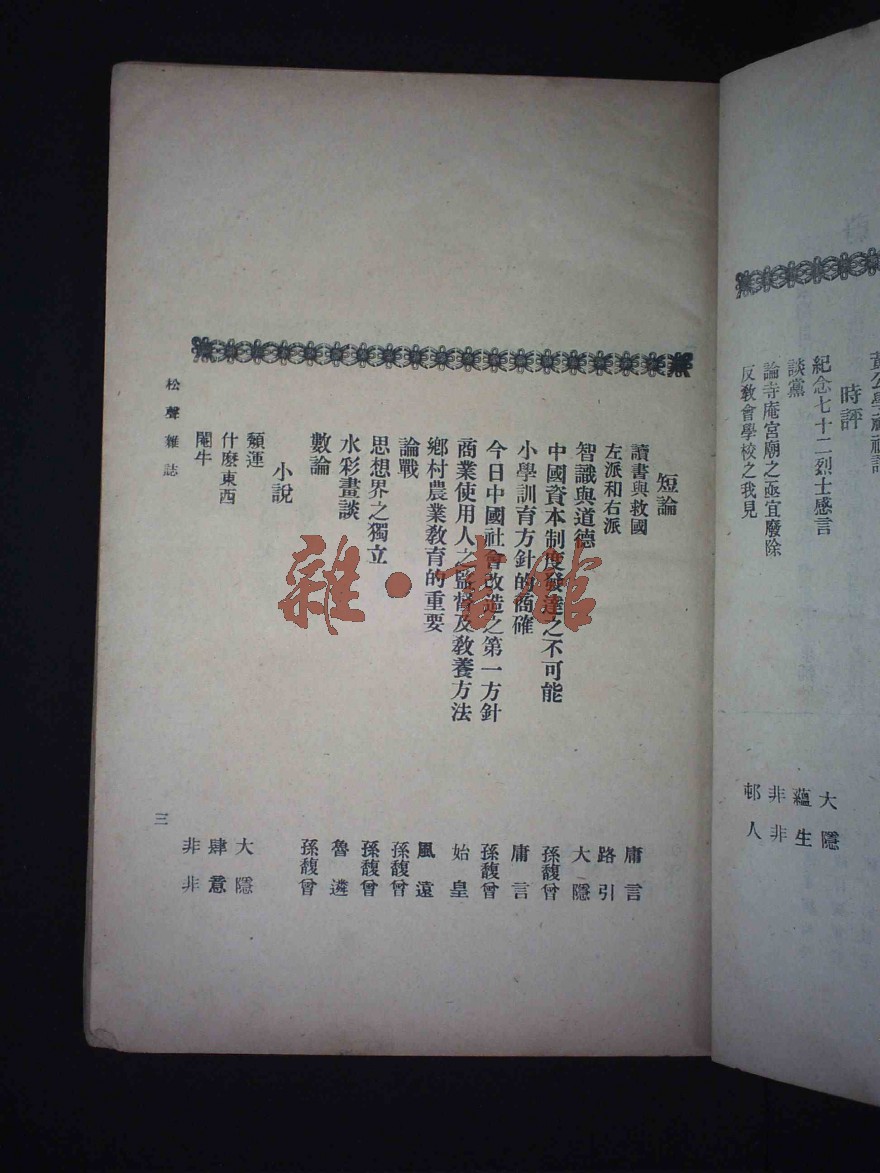 時評
紀念七十二烈士感言 大隱
談黨 蘊生
論寺庵宮廟之亟宜廢除 非非
反教會學校之我見 邨人
短論
讀書與救國 庸言
左派和右派 路引
智識與道德 大隱
中國資本制度發達之不可能 孫馥曾
小學訓育方針的商確 庸言
今日中國社會改造之第一方針 孫馥曾
商業使用人之監督及敎養方法 始皇
鄉村農業敎育的重要 風遠
論戰 孫馥曾
思想界之獨立 孫馥曾
水彩畫談 魯遴
數論 孫馥曾
小說
運 大隱
什麽東西 肆意
閹牛 非非
松聲雜誌
三
雜·書館